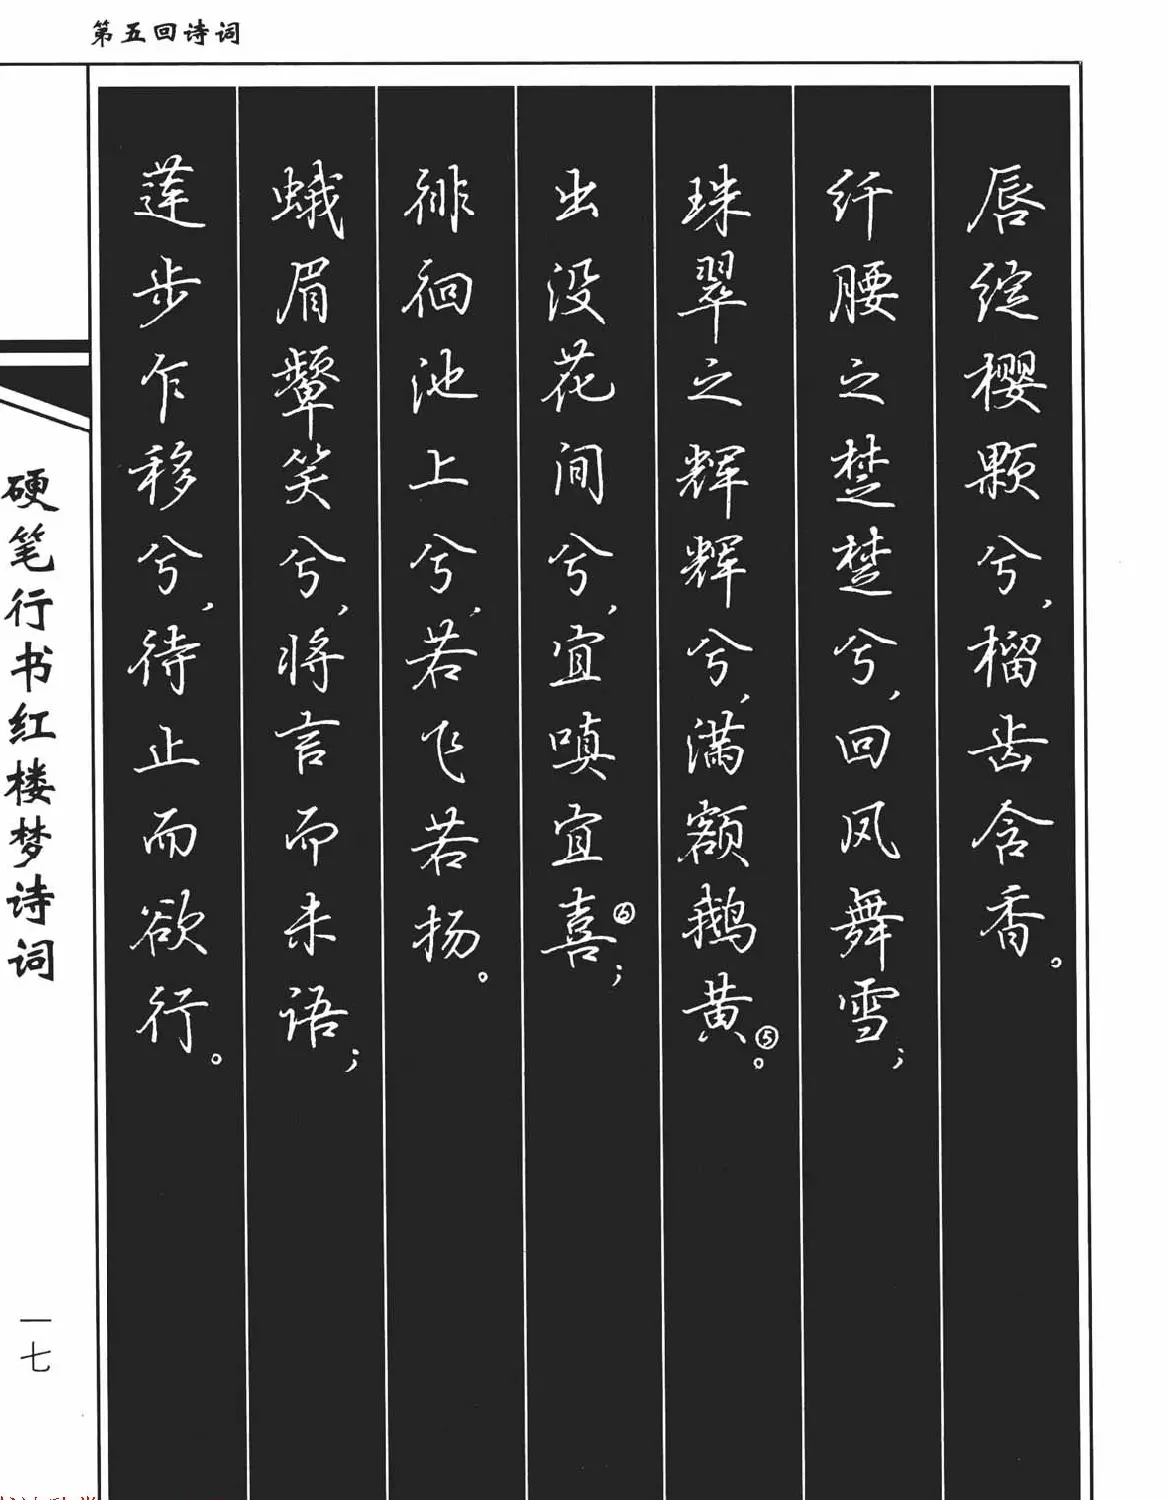 第五回诗词
唇绽樱颗兮，榴齿含香。
纤腰之楚楚兮，回风舞雪；
珠翠之辉辉兮，满额鹅黄⑤。
出没花间兮，宜嗔宜喜⑥；
徘徊池上兮，若飞若扬。
蛾眉颦笑兮，将言而未语；
莲步乍移兮，待止而欲行。
硬笔行书红楼梦诗词
一七